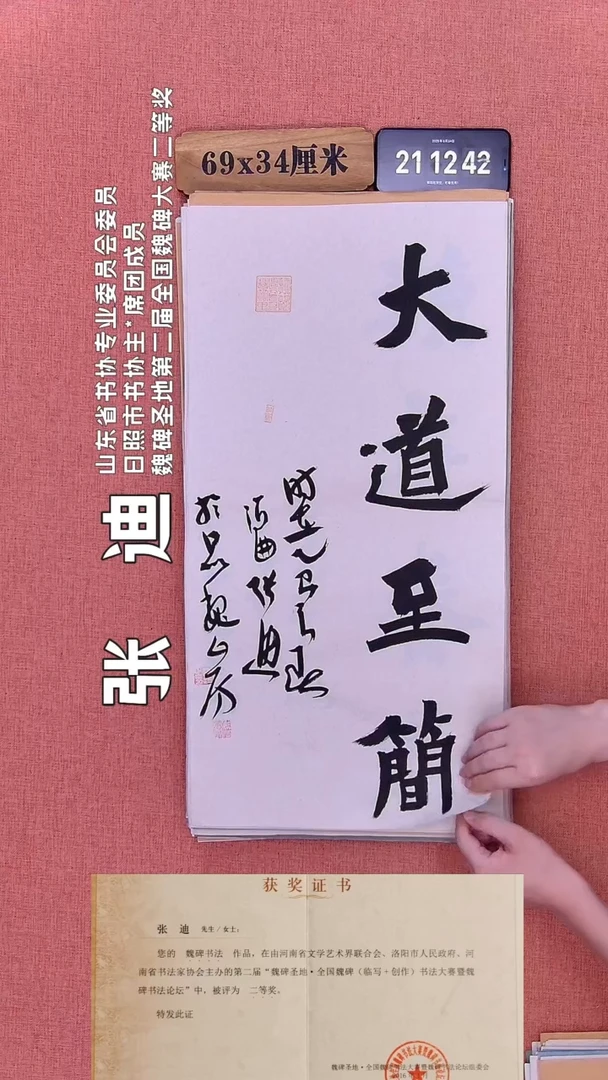 69x34厘米
21 12 42
山东省书协专业委员会委员
日照市书协主*席团成员
魏碑圣地第二届全国魏碑大赛二等奖
张 迪
大道至簡
获奖证书
张 迪 先生/女士:
您的 魏碑书法 作品,在由河南省文学艺术界联合会、洛阳市人民政府、河
南省书法家协会主办的第二届“魏碑圣地·全国魏碑(临写+创作)书法大赛暨魏
碑书法论坛”中,被评为 二等奖。
特发此证